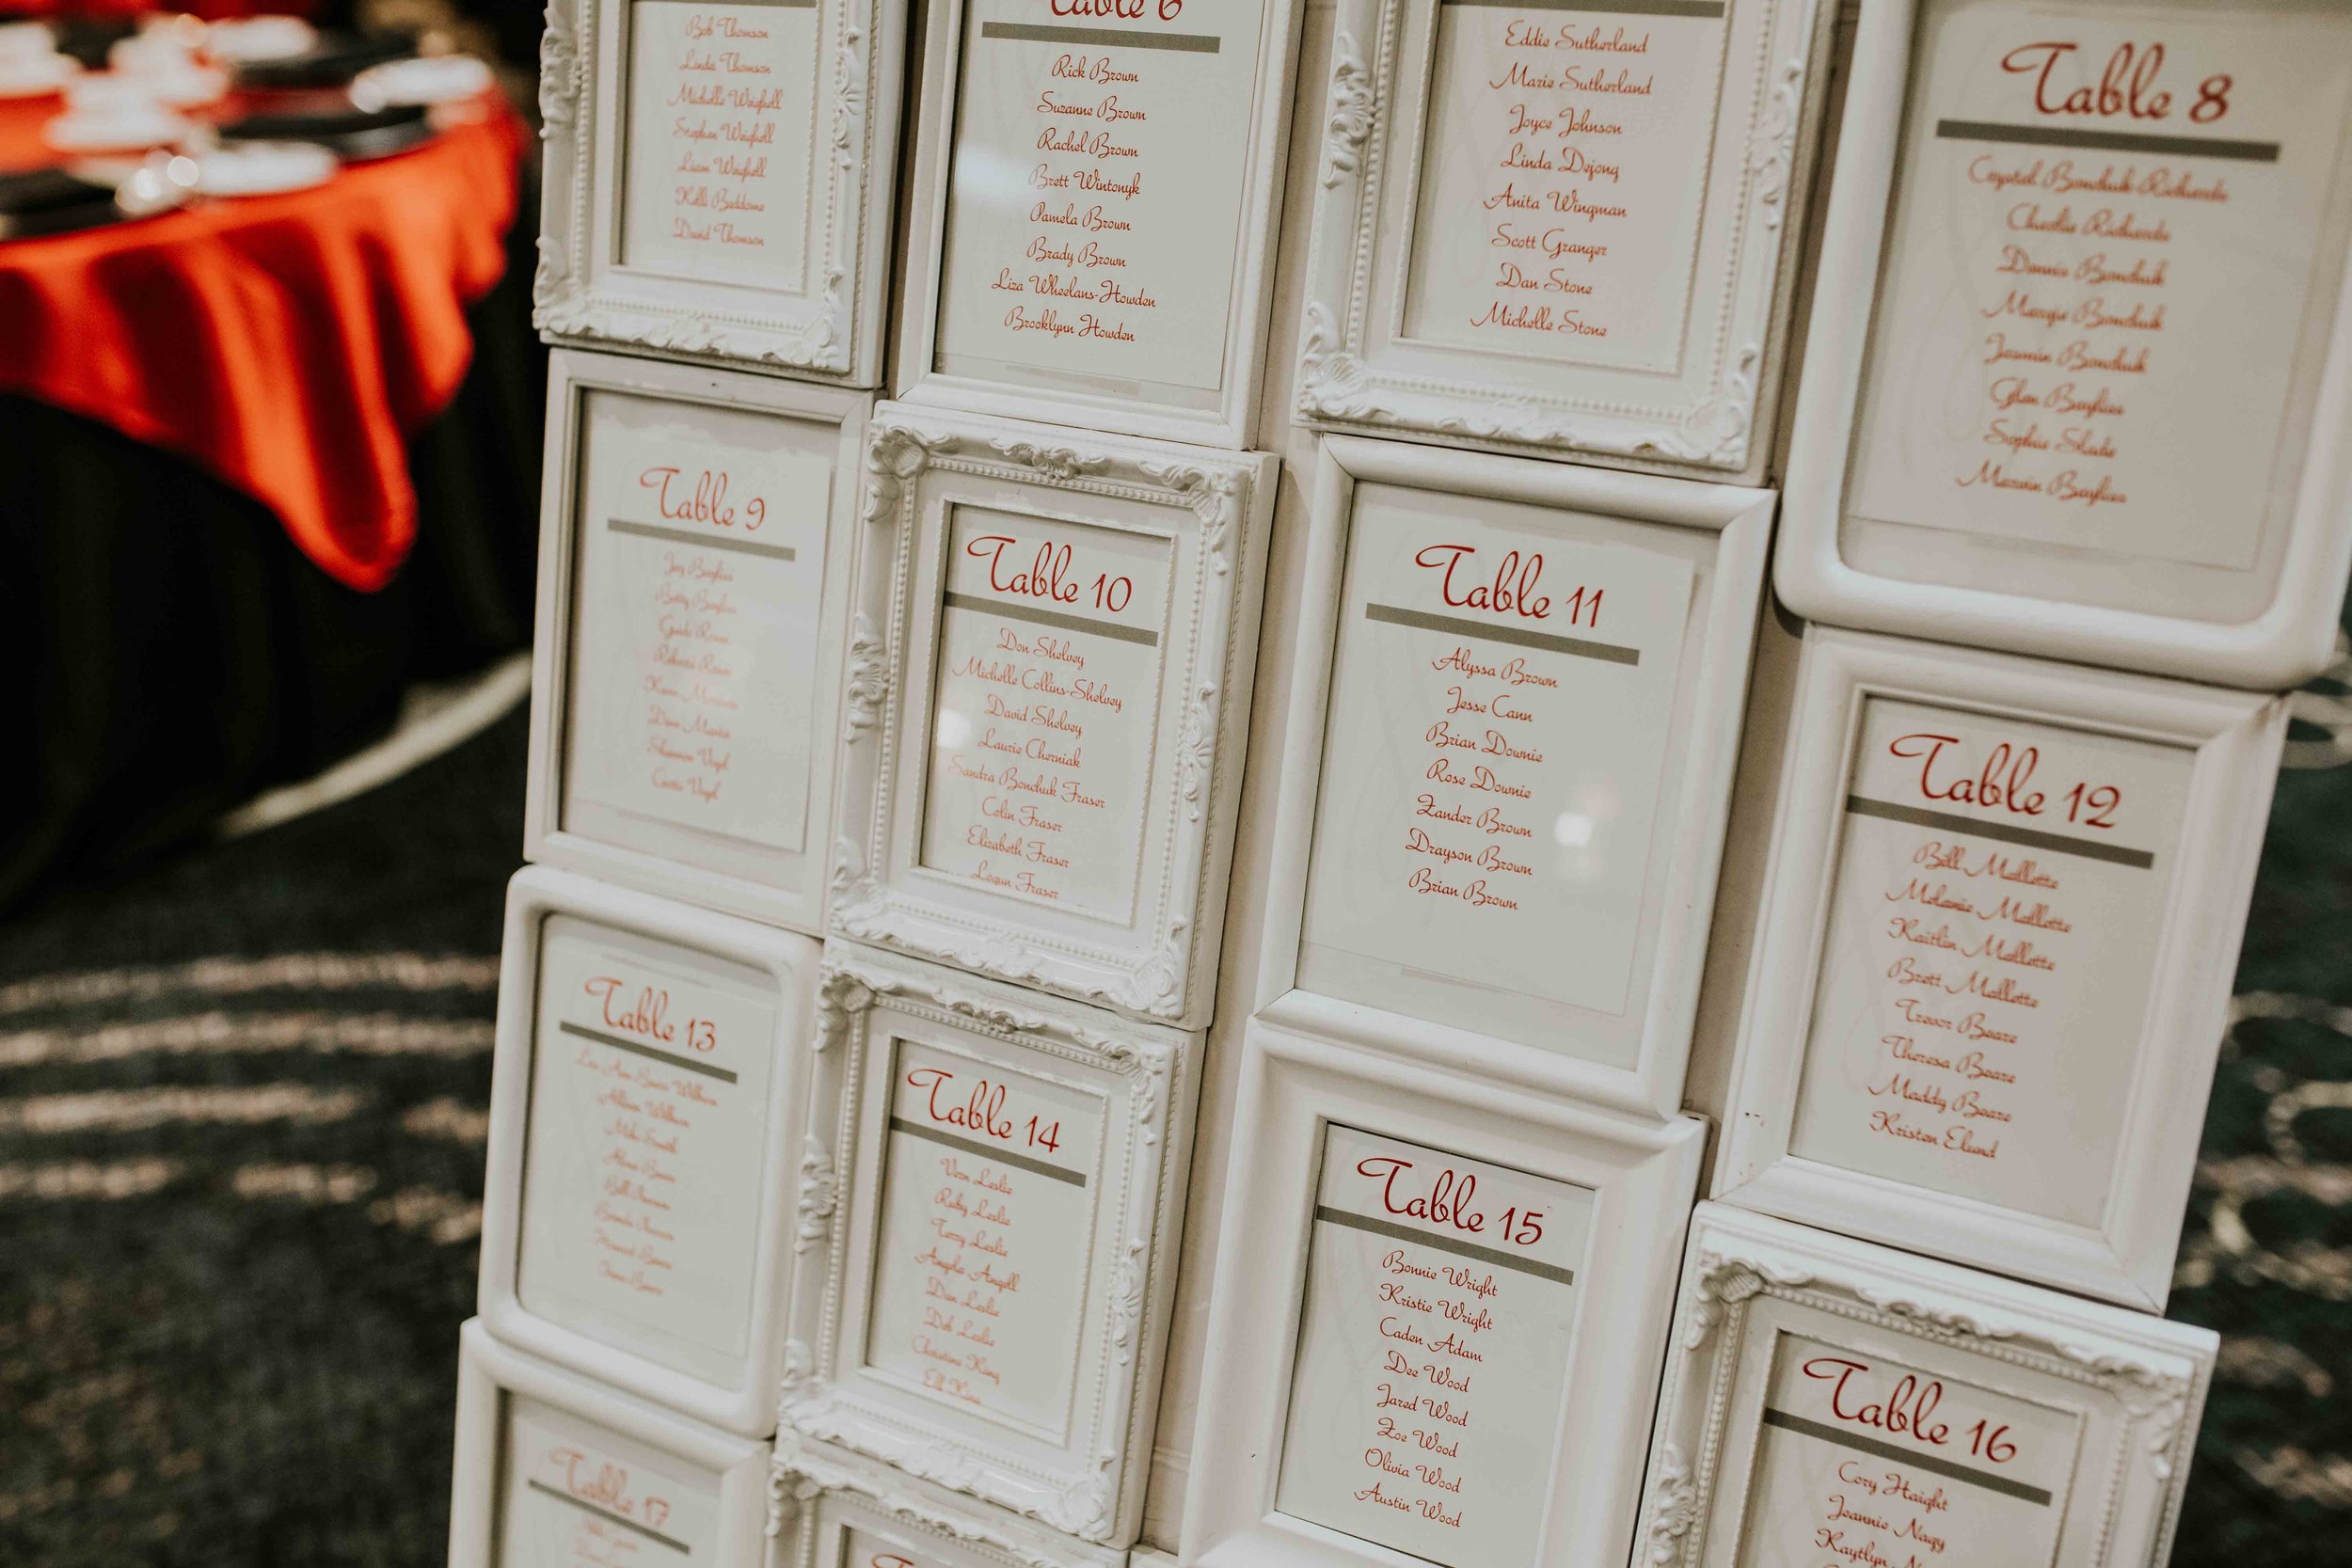 Bob Thomson
Linda Thomson
Michelle Weighell
Stephen Weighell
Liam Weighell
Kelli Beddome
David Thomson
Table 6
Rick Brown
Suzanne Brown
Rachel Brown
Brett Wintonyk
Pamela Brown
Brady Brown
Liza Wheelans-Howden
Brooklynn Howden
Eddie Sutherland
Marie Sutherland
Joyce Johnson
Linda Dejong
Anita Wingman
Scott Granger
Dan Stone
Michelle Stone
Table 8
Crystal Bonchuk-Richards
Charlie Richards
Dennis Bonchuk
Margie Bonchuk
Jasmin Bonchuk
Glen Bayliss
Sophie Slade
Marvin Bayliss
Table 9
Jay Bayliss
Betty Bayliss
Shannon Vogel
Curtis Vogel
Table 10
Don Shelvey
Michelle Collins-Shelvey
David Shelvey
Laurie Cherniak
Sandra Bonchuk Fraser
Colin Fraser
Elizabeth Fraser
Logun Fraser
Table 11
Alyssa Brown
Jesse Cann
Brian Downie
Rose Downie
Zander Brown
Drayson Brown
Brian Brown
Table 12
Bill Mallotte
Melanie Mallotte
Kaitlin Mallotte
Brett Mallotte
Trevor Beare
Theresa Beare
Maddy Beare
Kristen Elund
Table 13
Mike Smith
Table 14
Vern Leslie
Ruby Leslie
Terry Leslie
Angela Angell
Dan Leslie
Deb Leslie
Christine King
Table 15
Bonnie Wright
Kristie Wright
Caden Adam
Dee Wood
Jared Wood
Zoe Wood
Olivia Wood
Austin Wood
Table 16
Cory Haight
Jeannie Nagy
Kaytlyn
Table 17